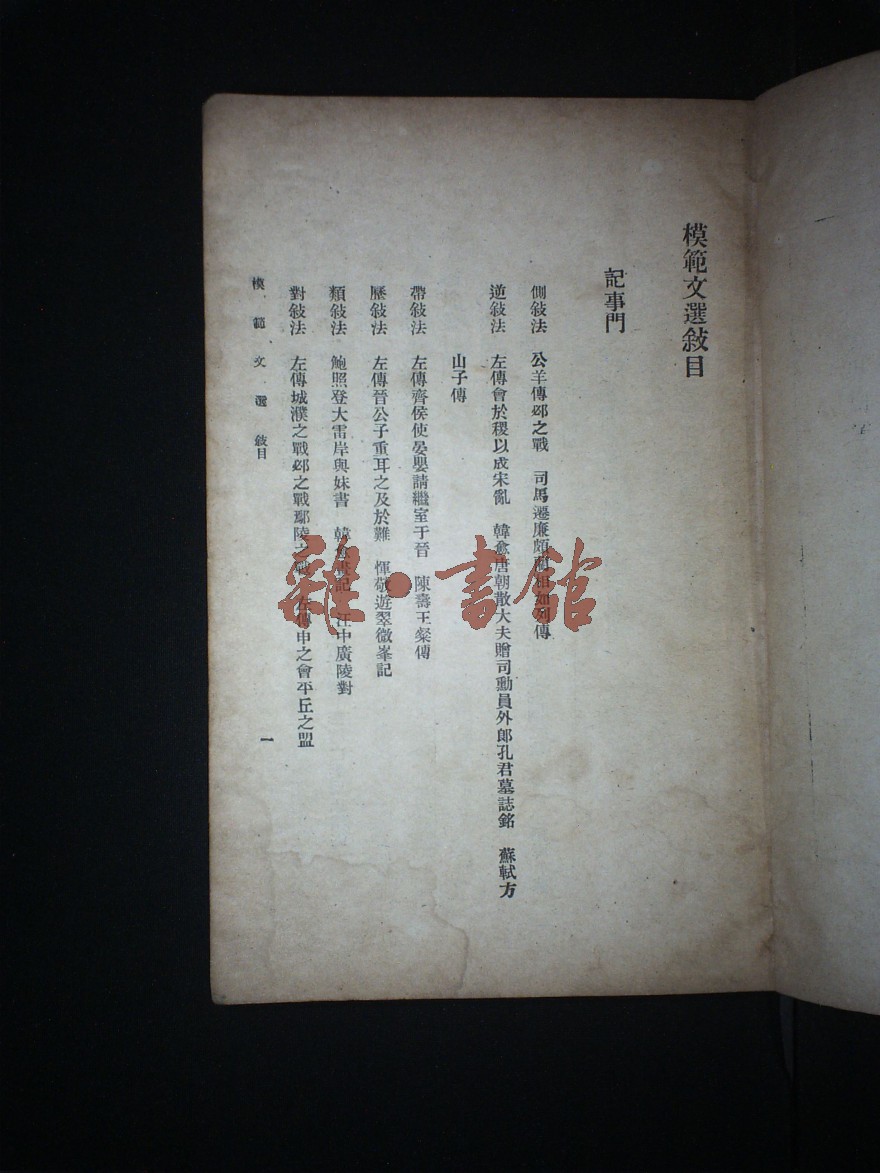 模範文選敍目
記事門
側敍法　公羊傳邲之戰　司馬遷廉頗藺相如列傳
逆敍法　左傳會於稷以成宋亂　韓愈唐朝散大夫贈司勳員外郎孔君墓誌銘　蘇軾方
山子傳
帶敍法　左傳齊侯使晏嬰請繼室于晉　陳壽王粲傳
歷敍法　左傳晉公子重耳之及於難　惲敬遊翠微峯記
類敍法　鮑照登大雷岸與妹書　韓愈畫記　汪中廣陵對
對敍法　左傳城濮之戰邲之戰鄢陵之戰　左傳申之會平丘之盟
模範文選　敍目
一
雜·書館